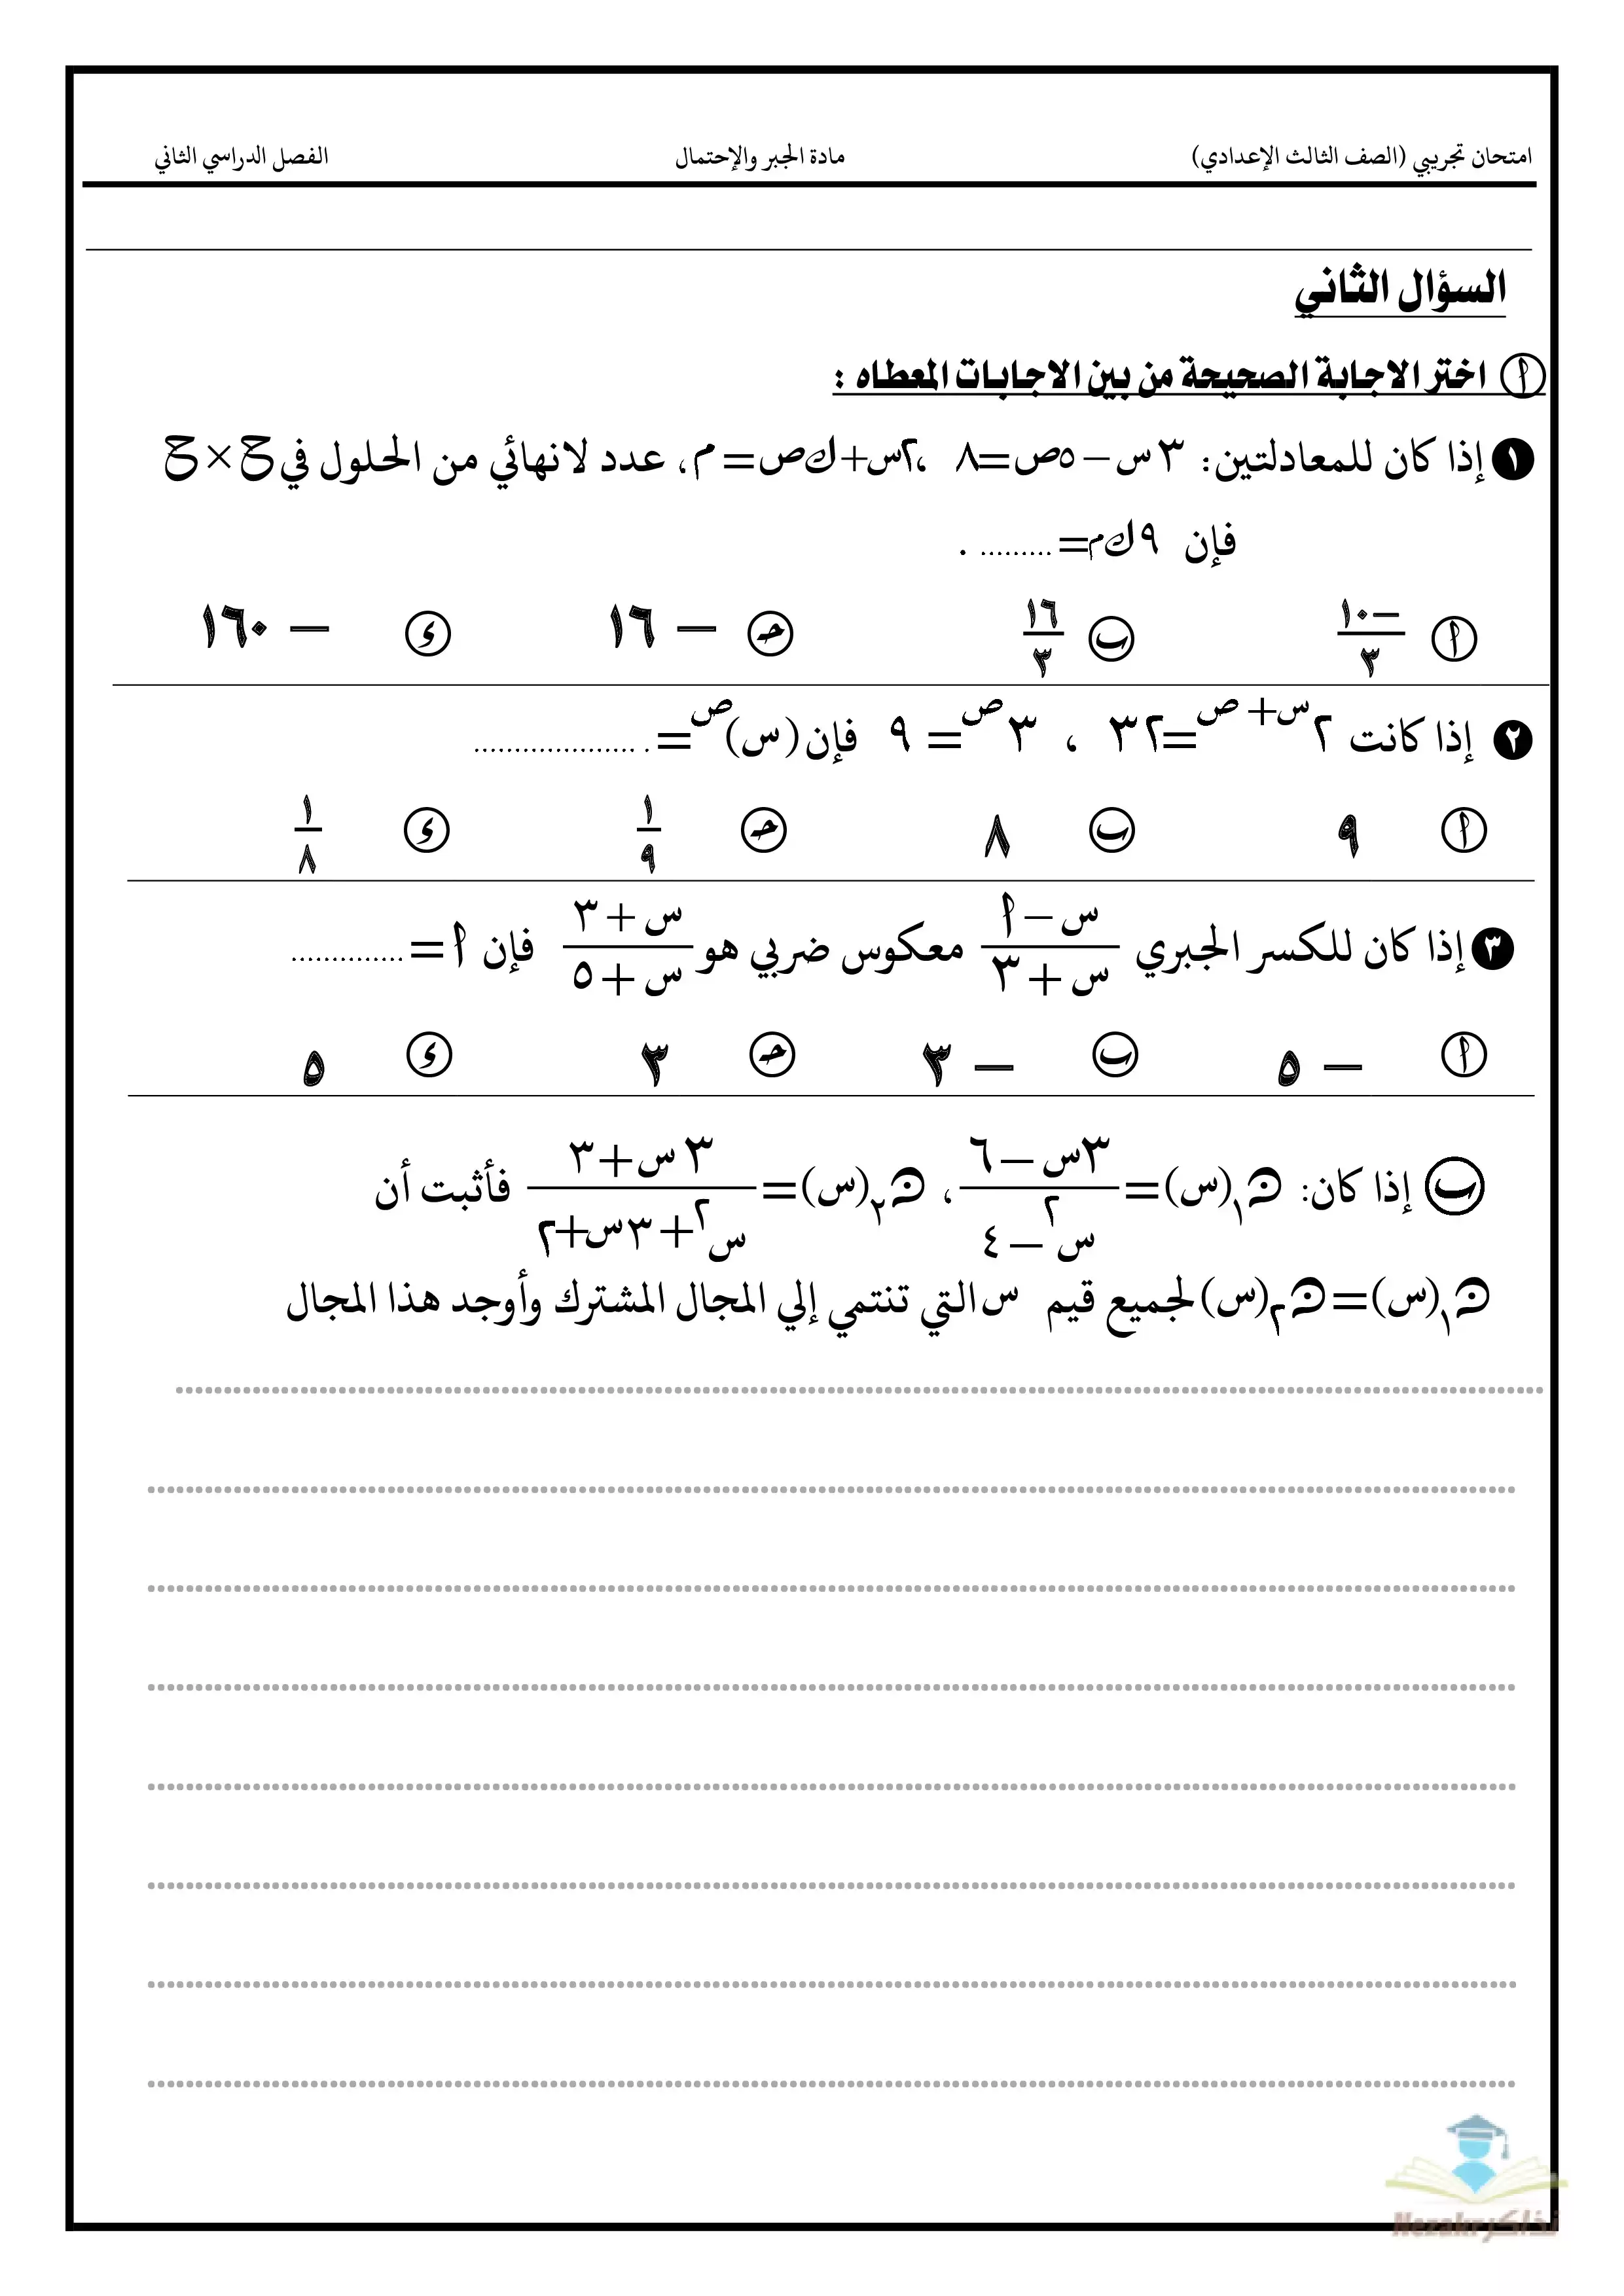 امتحان تجريبي (الصف الثالث الإعدادي) مادة الجبر والإحتمال الفصل الدراسي الثاني
السؤال الثاني
أ اختر الاجابة الصحيحة من بين الاجابات المعطاه :
١ إذا كان للمعادلتين: ٣س − ٥ص = ٨ ، ٢س + ك ص = م ، عدد لانهائي من الحلول في ح × ح
فإن ٩ ك م = ......... .
أ −١٠/٣ ب ١٦/٣ ج − ١٦ د − ١٦٠
٢ إذا كانت ٢^(س + ص) = ٣٢ ، ٣^ص = ٩ فإن (س)^ص = . ....................
أ ٩ ب ٨ ج ١/٩ د ١/٨
٣ إذا كان للكسر الجبري (س − أ)/(س + ٣) معكوس ضربي هو (س + ٣)/(س + ٥) فإن أ = ..............
أ − ٥ ب − ٣ ج ٣ د ٥
ب إذا كان: ن₁(س) = (٣س − ٦)/(س² − ٤) ، ن₂(س) = (٣س + ٣)/(س² + ٣س + ٢) فأثبت أن
ن₁(س) = ن₂(س) لجميع قيم س التي تنتمي إلي المجال المشترك وأوجد هذا المجال
نذاكر Nezakr